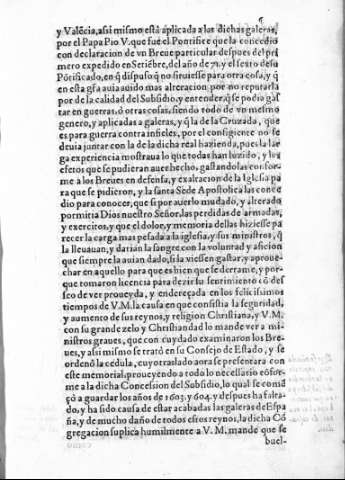 y Valẽcia, asi mismo està aplicada a las dichas galeras,
por el Papa Pio V. que fue el Pontifice que la concedio
con declaracion de vn Breue particular despues del pri
mero expedido en Setiẽbre, del año de 71. y el sexto de su
Põtificado, en q̃ dispuso, q̃ no siruiesse para otra cosa, y q̃
en esta gr̃a auia auido mas alteracion por no reputarla
por de la calidad del Subsidio, y entender, q̃ se podia gas
tar en guerras, ò otras cosas, siendo todo de vn mesmo
genero, y aplicadas a galeras, y q̃ la de la Cruzada, que
es para guerra contra infieles, por el consiguiente no se
deuia juntar con la de la dicha real hazienda, pues la lar
ga experiencia mostraua lo que todas han luzido, y los
efetos que se pudieran auer hecho, gastandolas confor-
me a los Breues en defensa, y exaltacion de la Iglesia pa
ra que se pidieron, y la santa Sede Apostolica las conce
dio para conocer, que si por auerlo mudado, y alterado
permitia Dios nuestro Señor las perdidas de armadas,
y exercitos, y que el dolor, y memoria dellas hiziesse pa
recer la carga mas pesada a la iglesia, y sus ministros, q̃
la lleuauan, y darian la sangre con la voluntad y aficion
que siempre la auian dado, si la viessen gastar, y aproue-
char en aquello para que es bien que se derrame, y por-
que tomaron licencia para dezir su sentimiento cõ des
seo de ver proueyda, y endereçada en los felicissimos
tiempos de V.M. la causa en que consistia la seguridad,
y aumento de sus reynos, y religion Christiana, y V.M.
con su grande zelo y Christiandad lo mande ver a mi-
nistros graues, que con cuydado examinaron los Bre-
ues, y asi mismo se tratò en su Consejo de Estado, y se
ordenò la cedula, cuyo traslado aora se presentara con
este memorial, proueyendo a todo lo necessario cõfor-
me a la dicha Concession del Subsidio, lo qual se comẽ
çò a guardar los años de 1603. y 604. y despues ha falta-
do, y ha sido causa de estar acabadas las galeras de Espa
ña, y de mucho daño de todos estos reynos, la dicha Cõ
gregacion suplica humilmente a V. M. mande que se
buel-